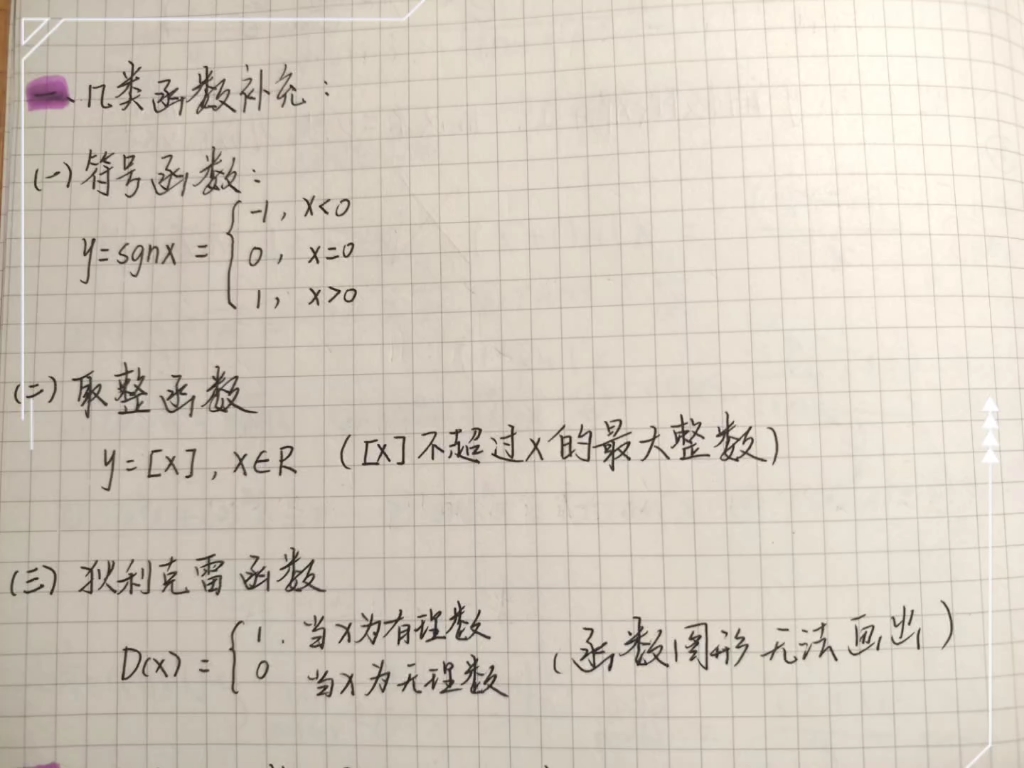 一、几类函数补充:
(一)符号函数:
y=sgnx = { -1, x<0
0, x=0
1, x>0
(二)取整函数
y=[x], x∈R ([x]不超过x的最大整数)
(三)狄利克雷函数
D(x) = { 1. 当x为有理数
0 当x为无理数 (函数图形无法画出)